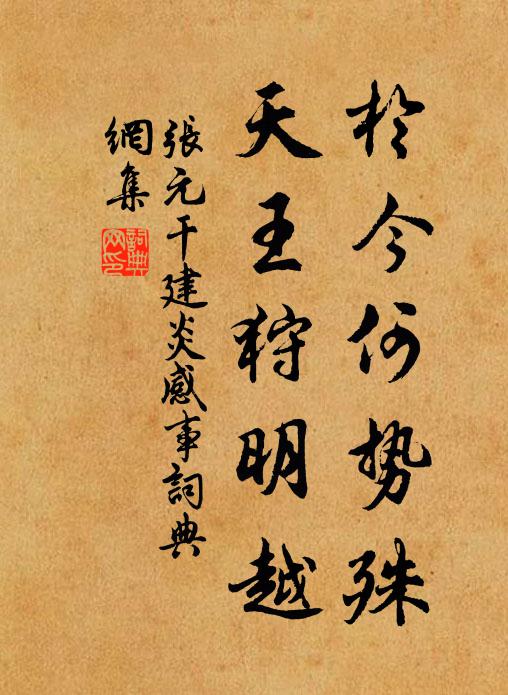 於今何势殊
天王狩明越
張元干建炎感事詞典
網集
詞典
网印